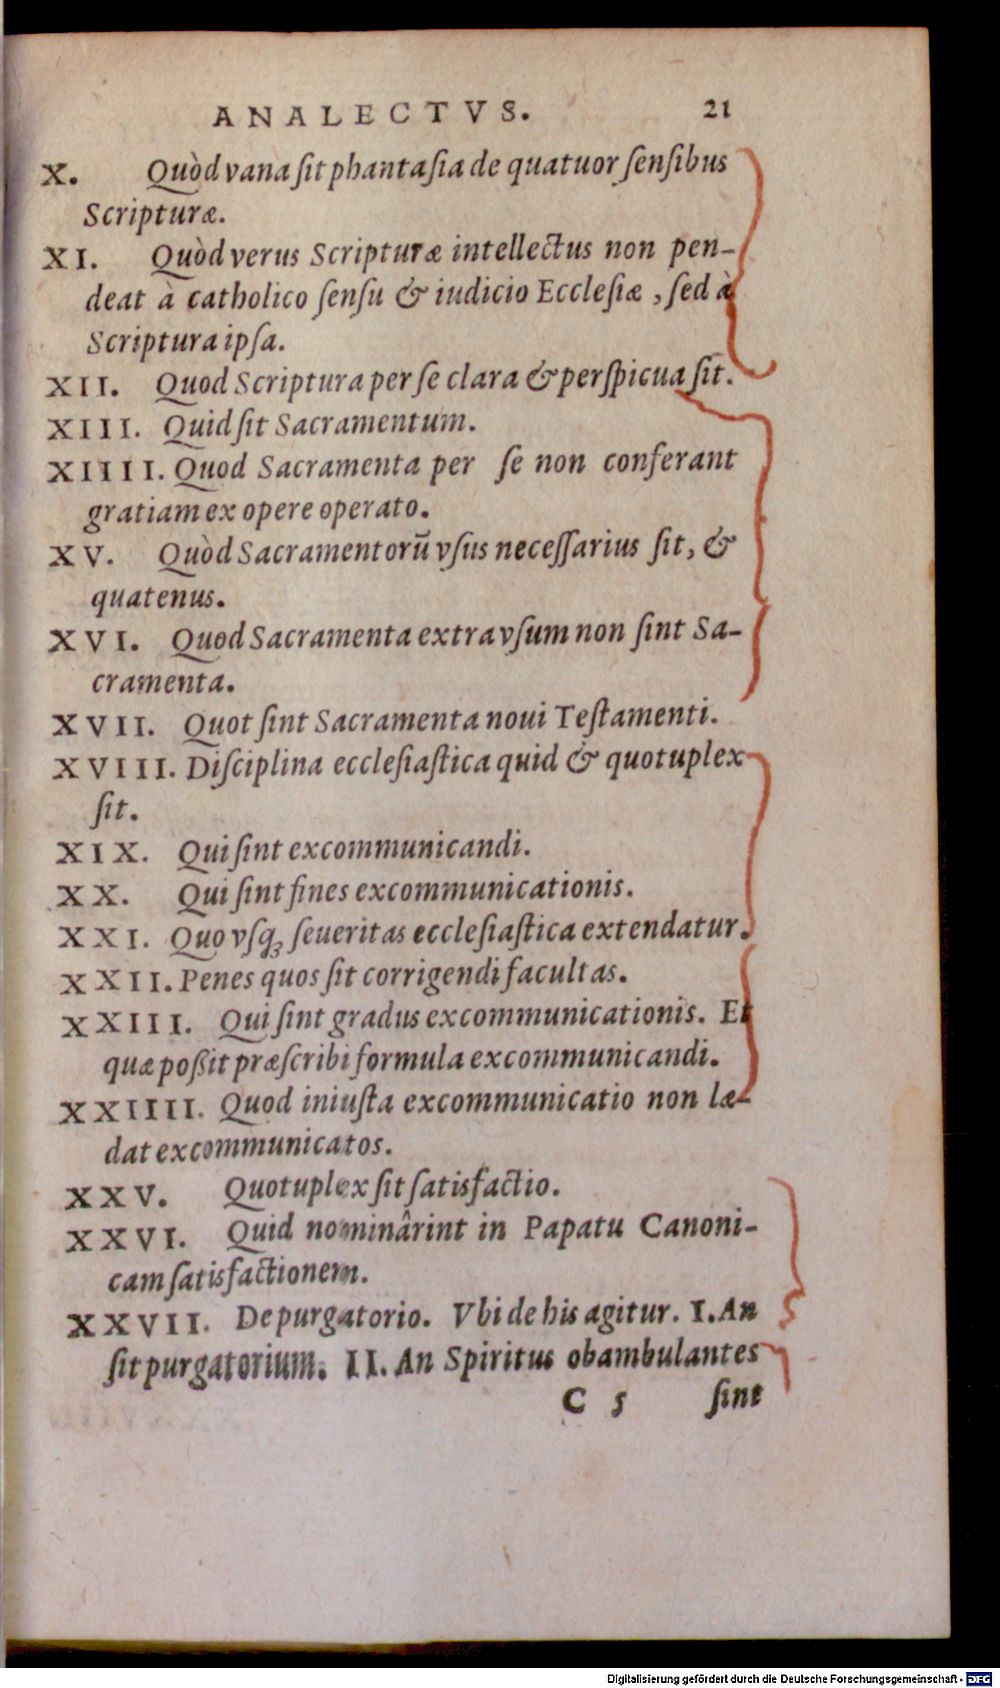 ANALECTVS. 21
X. Quòd vana ſit phantaſia de quatuor ſenſibus
Scripturæ.
XI. Quòd verus Scripturæ intellectus non pen-
deat à catholico ſenſu & iudicio Eccleſiæ, ſed à
Scriptura ipſa.
XII. Quod Scriptura per ſe clara & perſpicua ſit.
XIII. Quid ſit Sacramentum.
XIIII. Quod Sacramenta per ſe non conferant
gratiam ex opere operato.
XV. Quòd Sacramentorū vſus neceſſarius ſit, &
quatenus.
XVI. Quod Sacramenta extra vſum non ſint Sa-
cramenta.
XVII. Quot ſint Sacramenta noui Teſtamenti.
XVIII. Diſciplina eccleſiaſtica quid & quotuplex
ſit.
XIX. Qui ſint excommunicandi.
XX. Qui ſint fines excommunicationis.
XXI. Quo vſq; ſeueritas eccleſiaſtica extendatur.
XXII. Penes quos ſit corrigendi facultas.
XXIII. Qui ſint gradus excommunicationis. Et
quæ poßit præſcribi formula excommunicandi.
XXIIII. Quod iniuſta excommunicatio non læ-
dat excommunicatos.
XXV. Quotuplex ſit ſatisfactio.
XXVI. Quid nominârint in Papatu Canoni-
cam ſatisfactionem.
XXVII. De purgatorio. Vbi de his agitur. I. An
ſit purgatorium. II. An Spiritus obambulantes
C 5 ſint
Digitalisierung gefördert durch die Deutsche Forschungsgemeinschaft - DFG